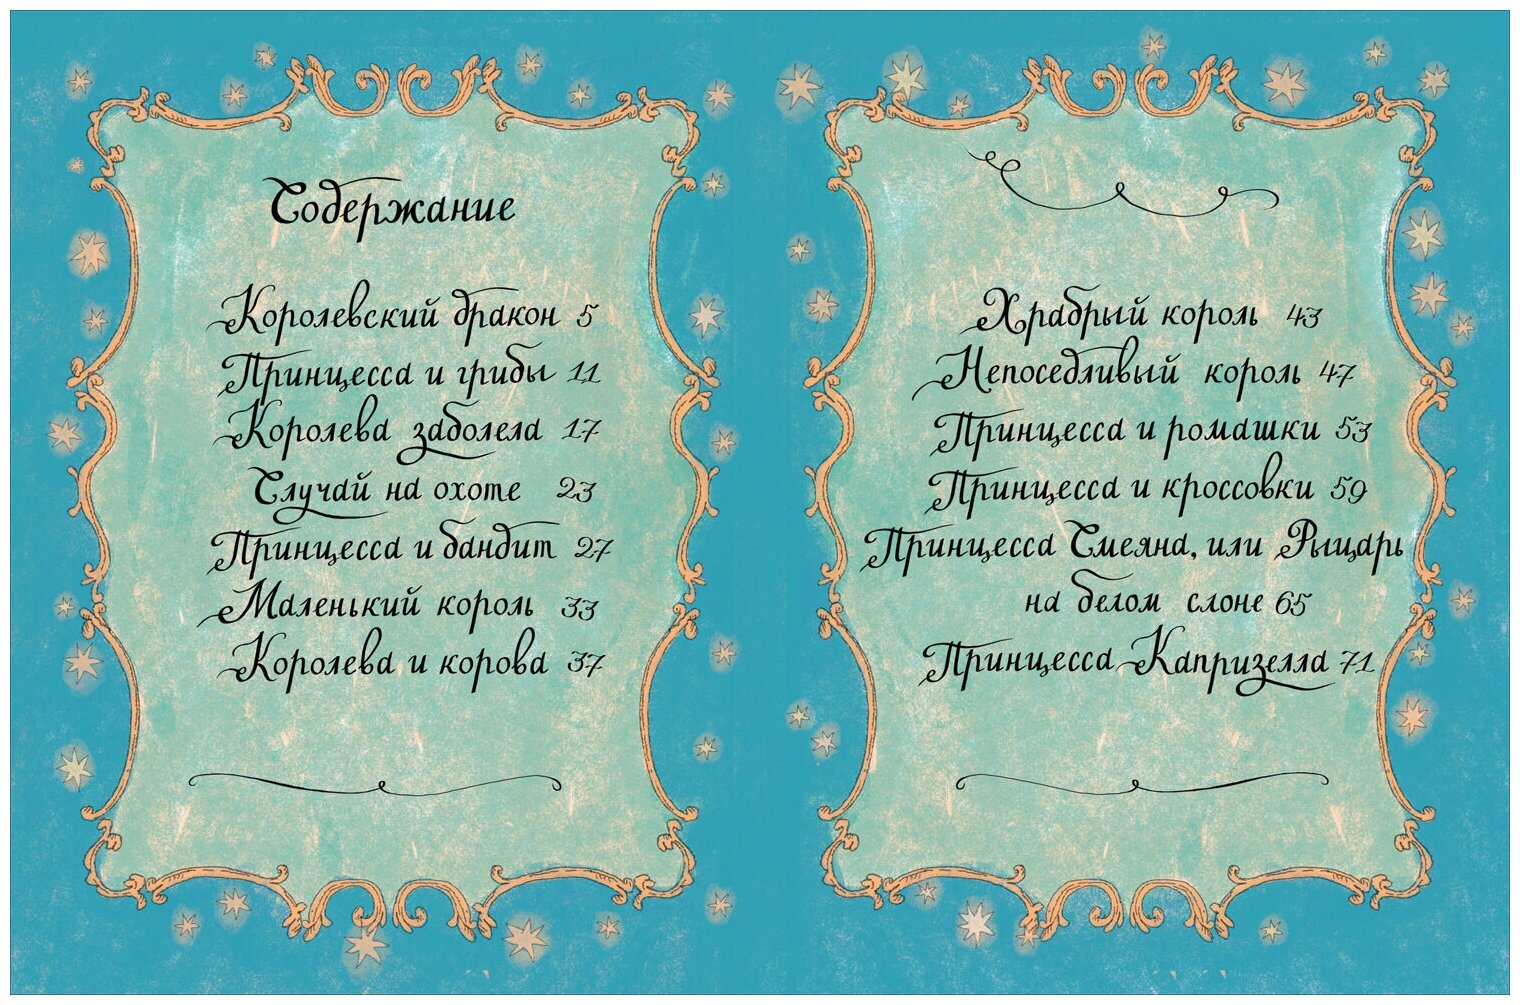 Содержание
Королевский дракон 5
Принцесса и грибы 11
Королева заболела 17
Случай на охоте 23
Принцесса и бандит 27
Маленький король 33
Королева и корова 37
Храбрый король 43
Непоседливый король 47
Принцесса и ромашки 53
Принцесса и кроссовки 59
Принцесса Смеяна, или Рыцарь
на белом слоне 65
Принцесса Капризелла 71